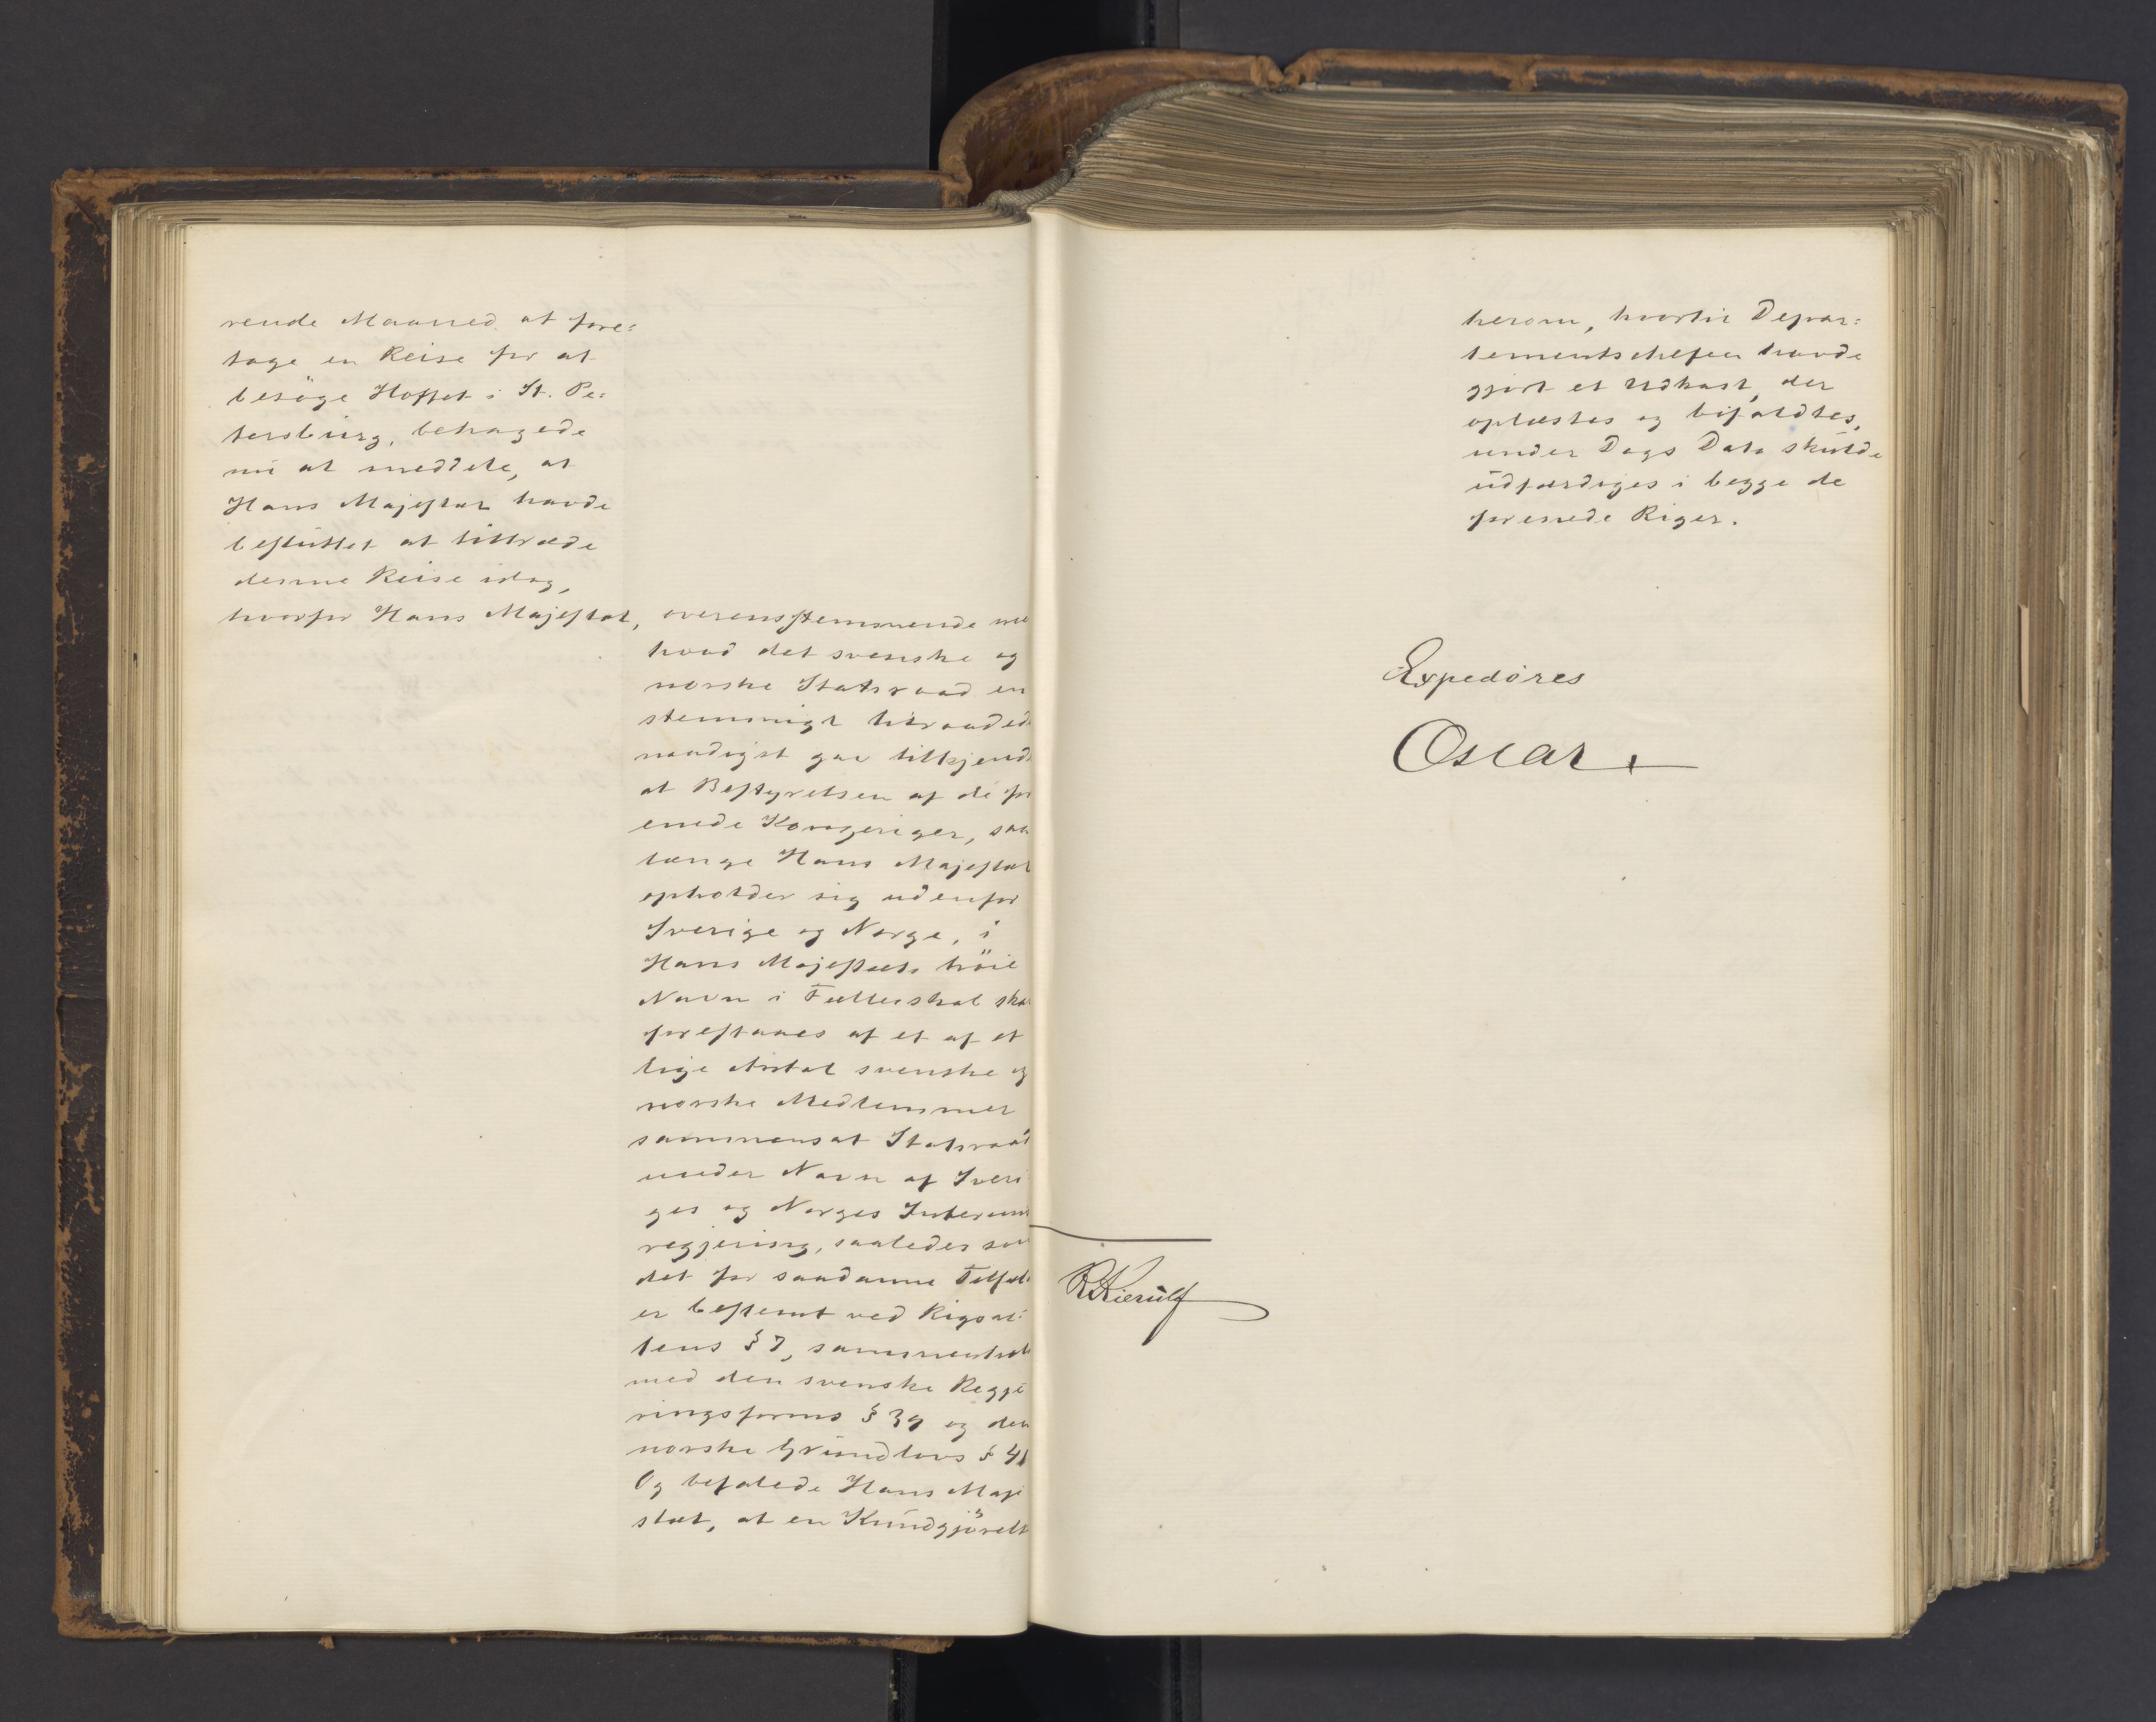 rende Maaned at fore=
tage en Reise for at
besöge Hoffet i St. Pe=
tersburg, behagede
nu at meddele, at
Hans Majestæt havde
besluttet at tiltræde
denne Reise idag,
hvorfor Hans Majestæt, overensstemmende me
hvad det svenske og
norske Statsraad en
stemmigt tilraadede
naadigst gav tilkjende
at Bestyrelsen af de for
enede Kongeriger, saa
længe Hans Majestæt
opholder sig udenfor
Sverige og Norge, i
Hans Majestæts höie
Navn i Fælleskab skal
forestaaes af et af et
lige Antal svenske og
norske Medlemmer
sammensat Statsraad
under Navn af Sveri
ges og Norges Interims
regjering, saaledes som
det for saadanne Tilfælde
er bestemt ved Rigsak
tens § 7, sammenholdt
med den svenske Regje
ringsforms § 39 og den
norske Grundlovs § 41
Og befalede Hans Maje
stæt, at en Kundgjörelse
herom, hvortil Depar=
tementschefen havde
gjort et Udkast, der
oplæstes og bifaldtes,
under Dags Dato skulde
udfærdiges i begge de
forenede Riger.
Expedöres
Oscar
RKierulf